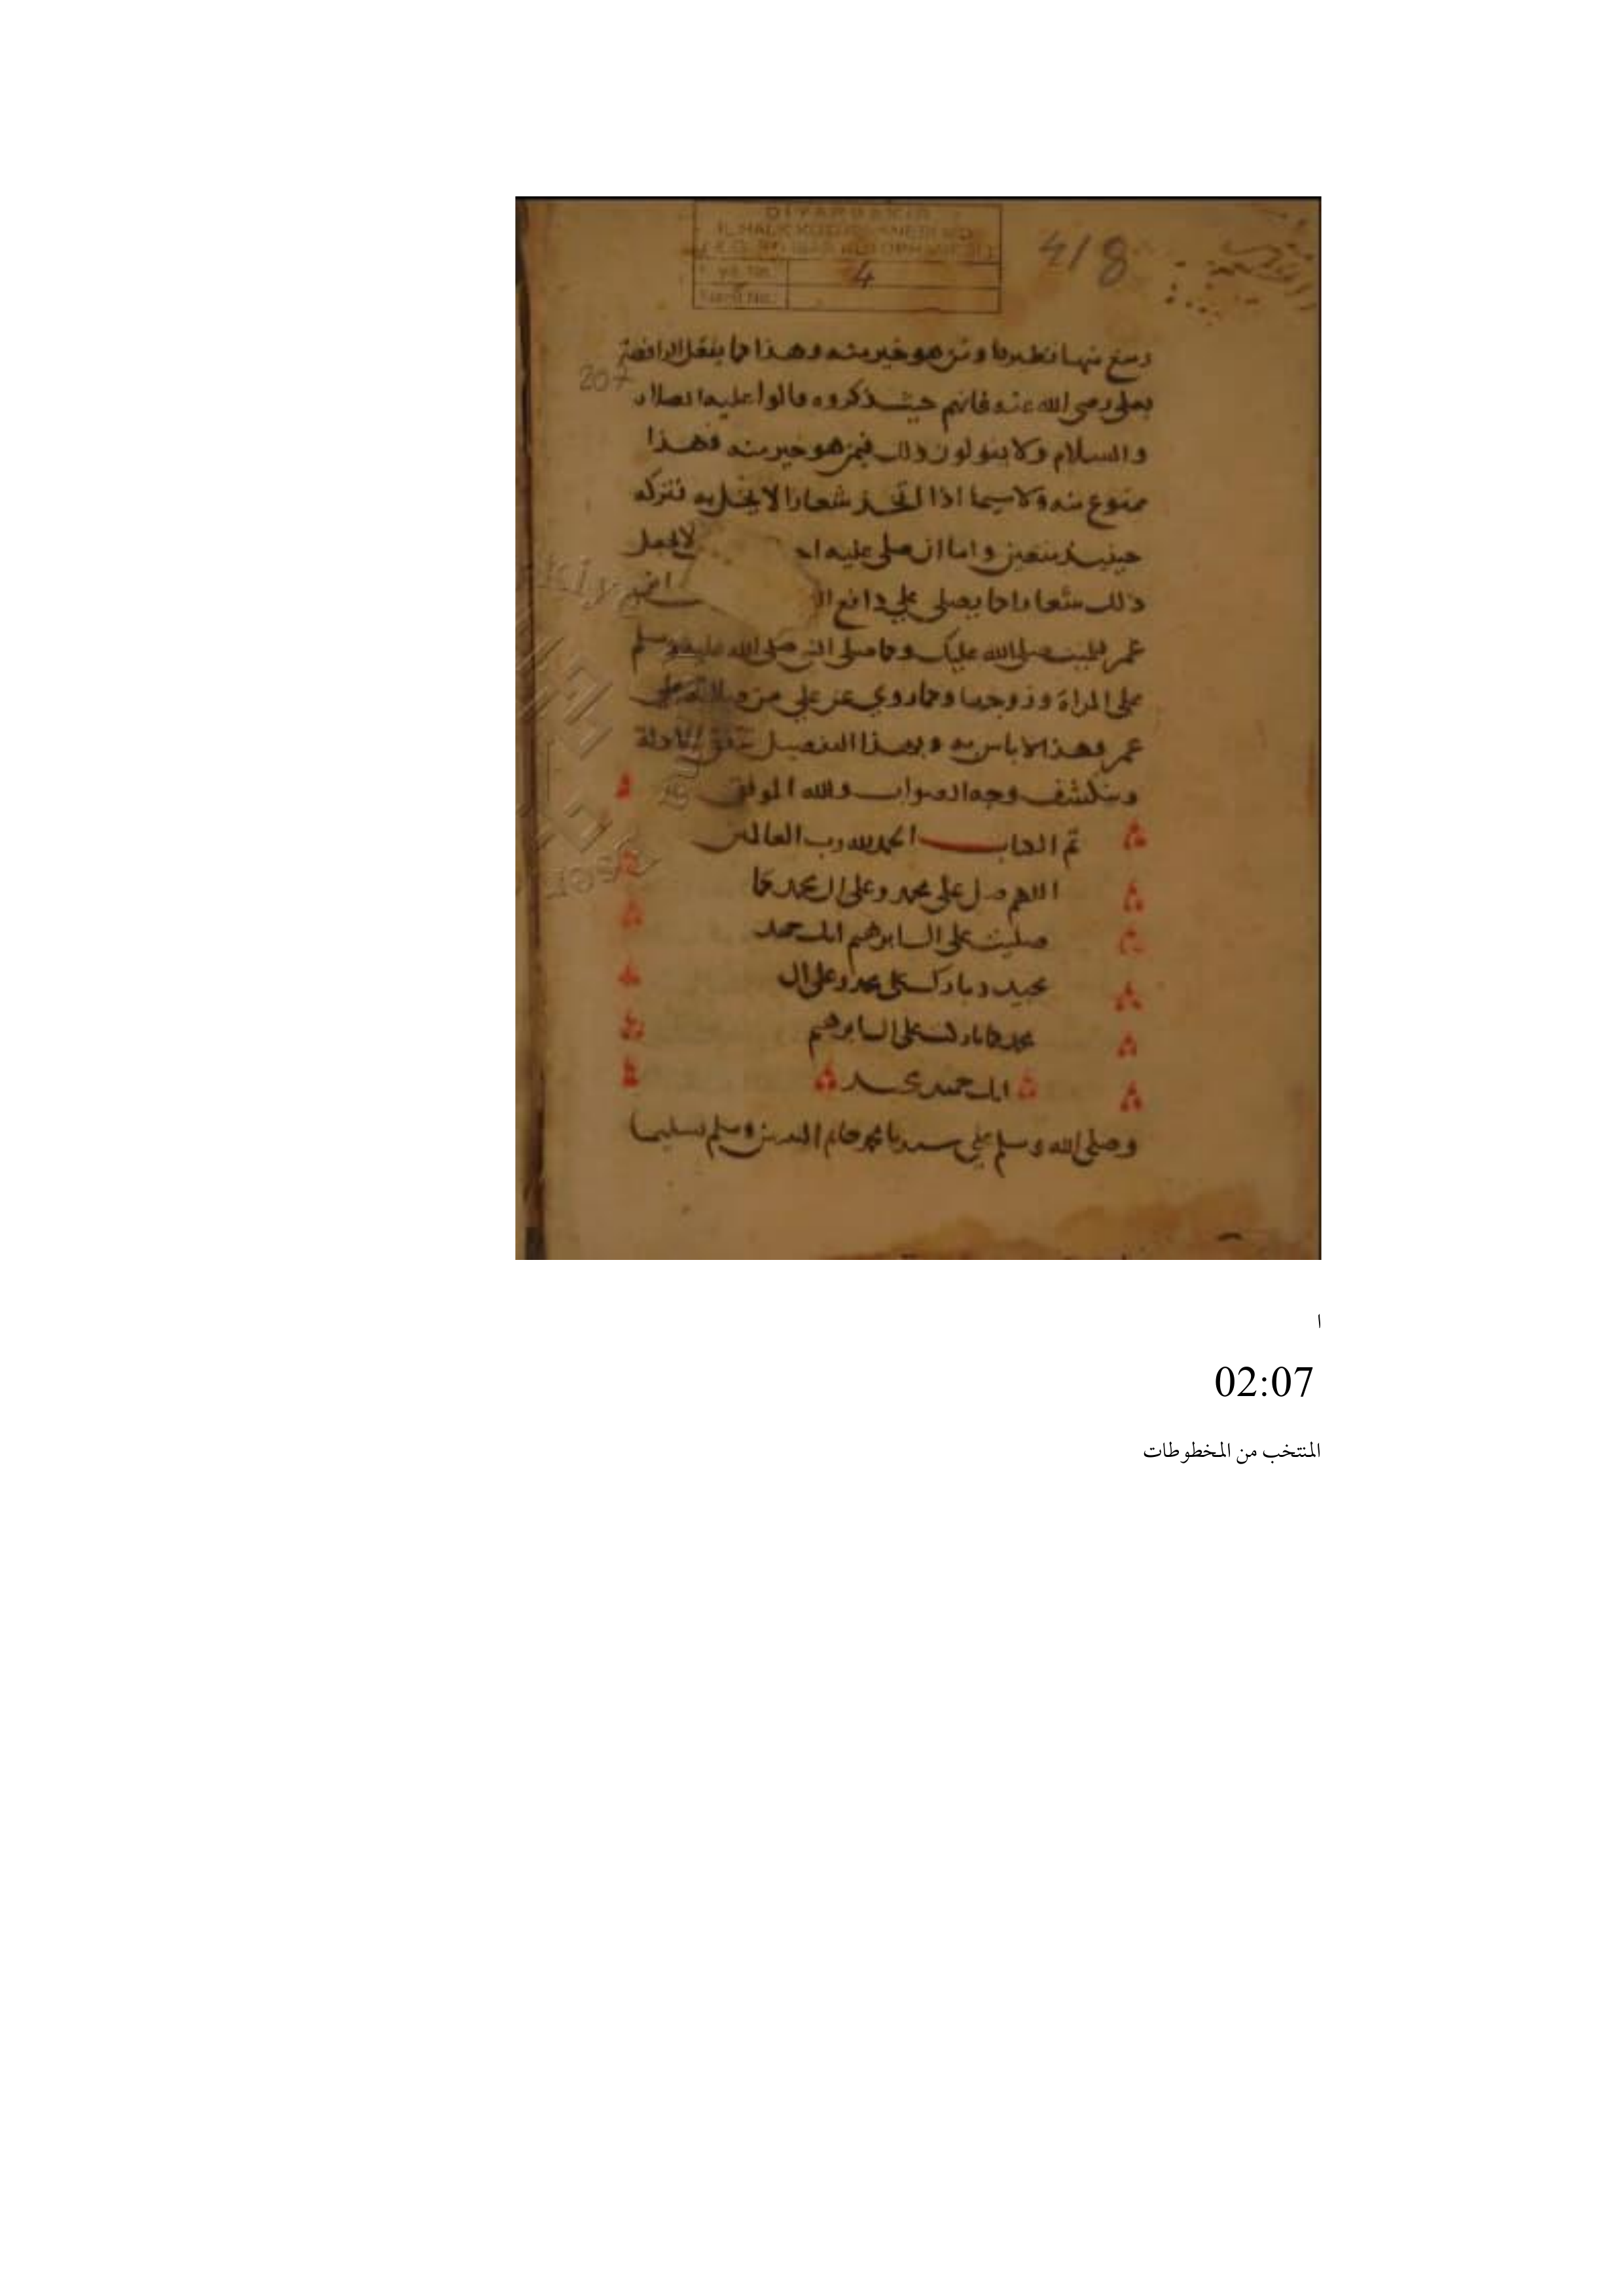 DIYARBAKIR
IL HALK KÜTÜPHANESI MD.
4
418
207
ومنع منها نظيره او من هو خير منه وهذا كما يفعل الرافضة
بعلي رضي الله عنه فانهم حيث ذكروه قالوا عليه الصلاة
والسلام ولا يقولون ذلك فيمن هو خير منه فهذا
ممنوع منه ولا سيما اذا اتخذ شعارا لا يخل به فتركه
حينيذ متعين واما ان صلى عليه ا لا يجعل
ذلك شعارا كما يصلى على دافع ا
عمر للميت صلى الله عليك وكما صلى النبي صلى الله عليه وسلم
على المراة وزوجها وكما روي عن علي من صلاته على
عمر فهذا لا باس به وبهذا التفصيل تتفق الادلة
وينكشف وجه الصواب والله الموفق
تم الكتاب الحمد لله رب العالمين
اللهم صل على محمد وعلى ال محمد كما
صليت على ال ابرهيم انك حميد
مجيد وبارك على محمد وعلى ال
محمد كما باركت على ال ابرهيم
انك حميد مجيد
وصلى الله وسلم على سيدنا محمد خاتم النبيين وسلم تسليما
ا
02:07
المنتخب من المخطوطات